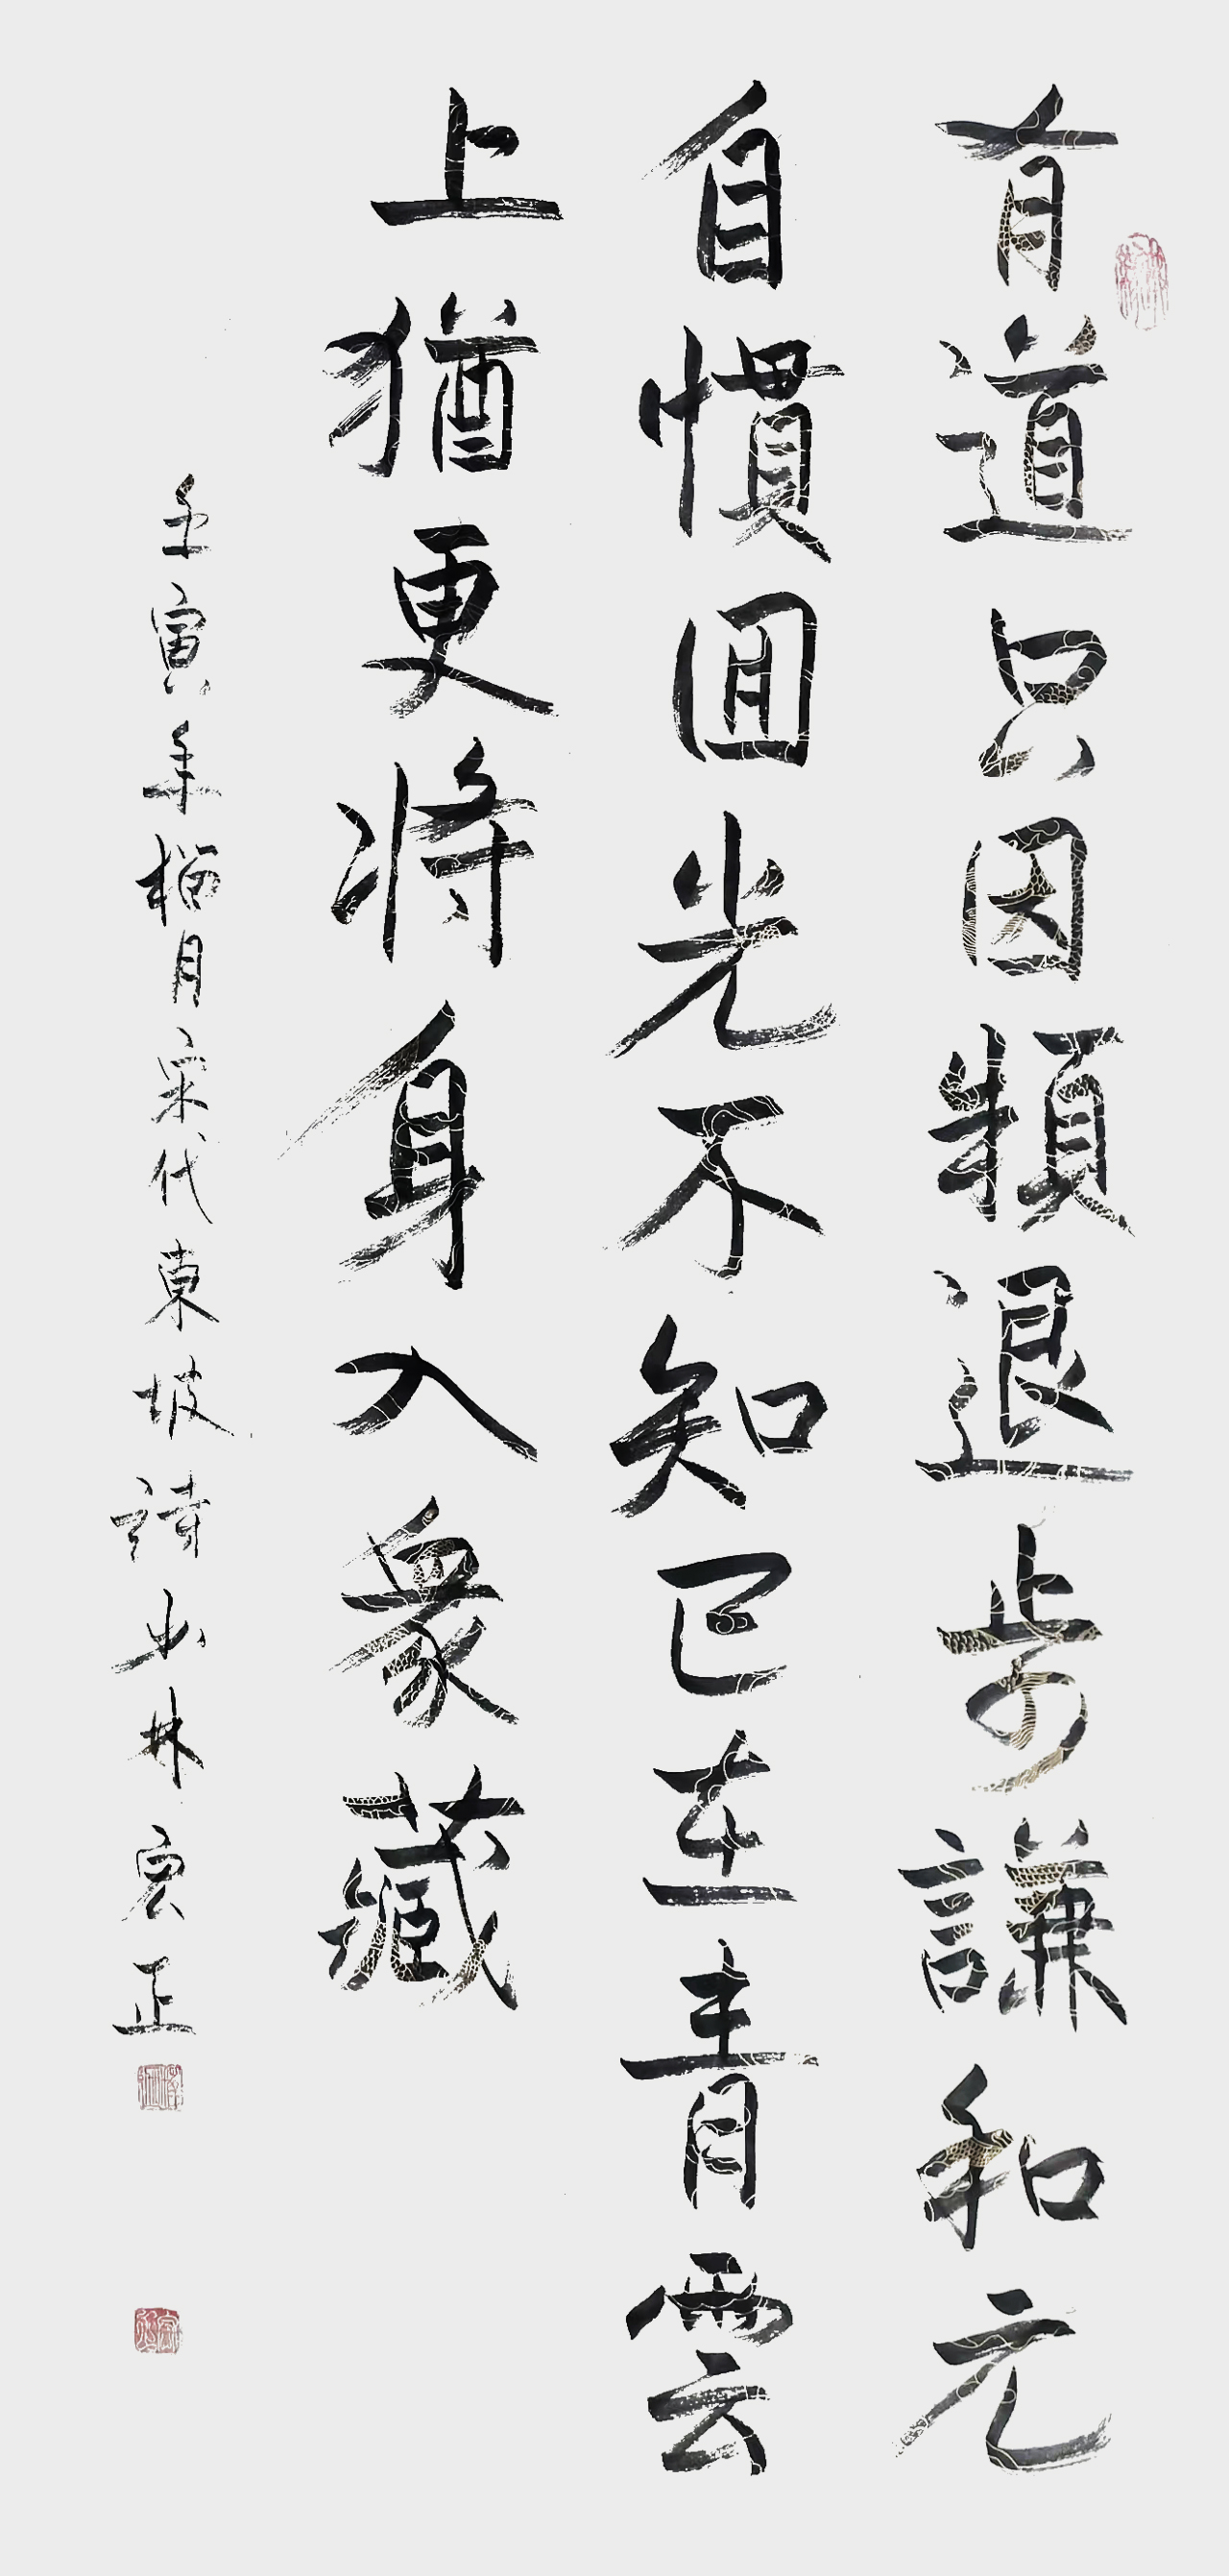 有道只因頻退步謙和元
自慣回光不知已在青雲
上猶更將身入眾藏
壬寅年榴月宋代東坡詩書林宗正